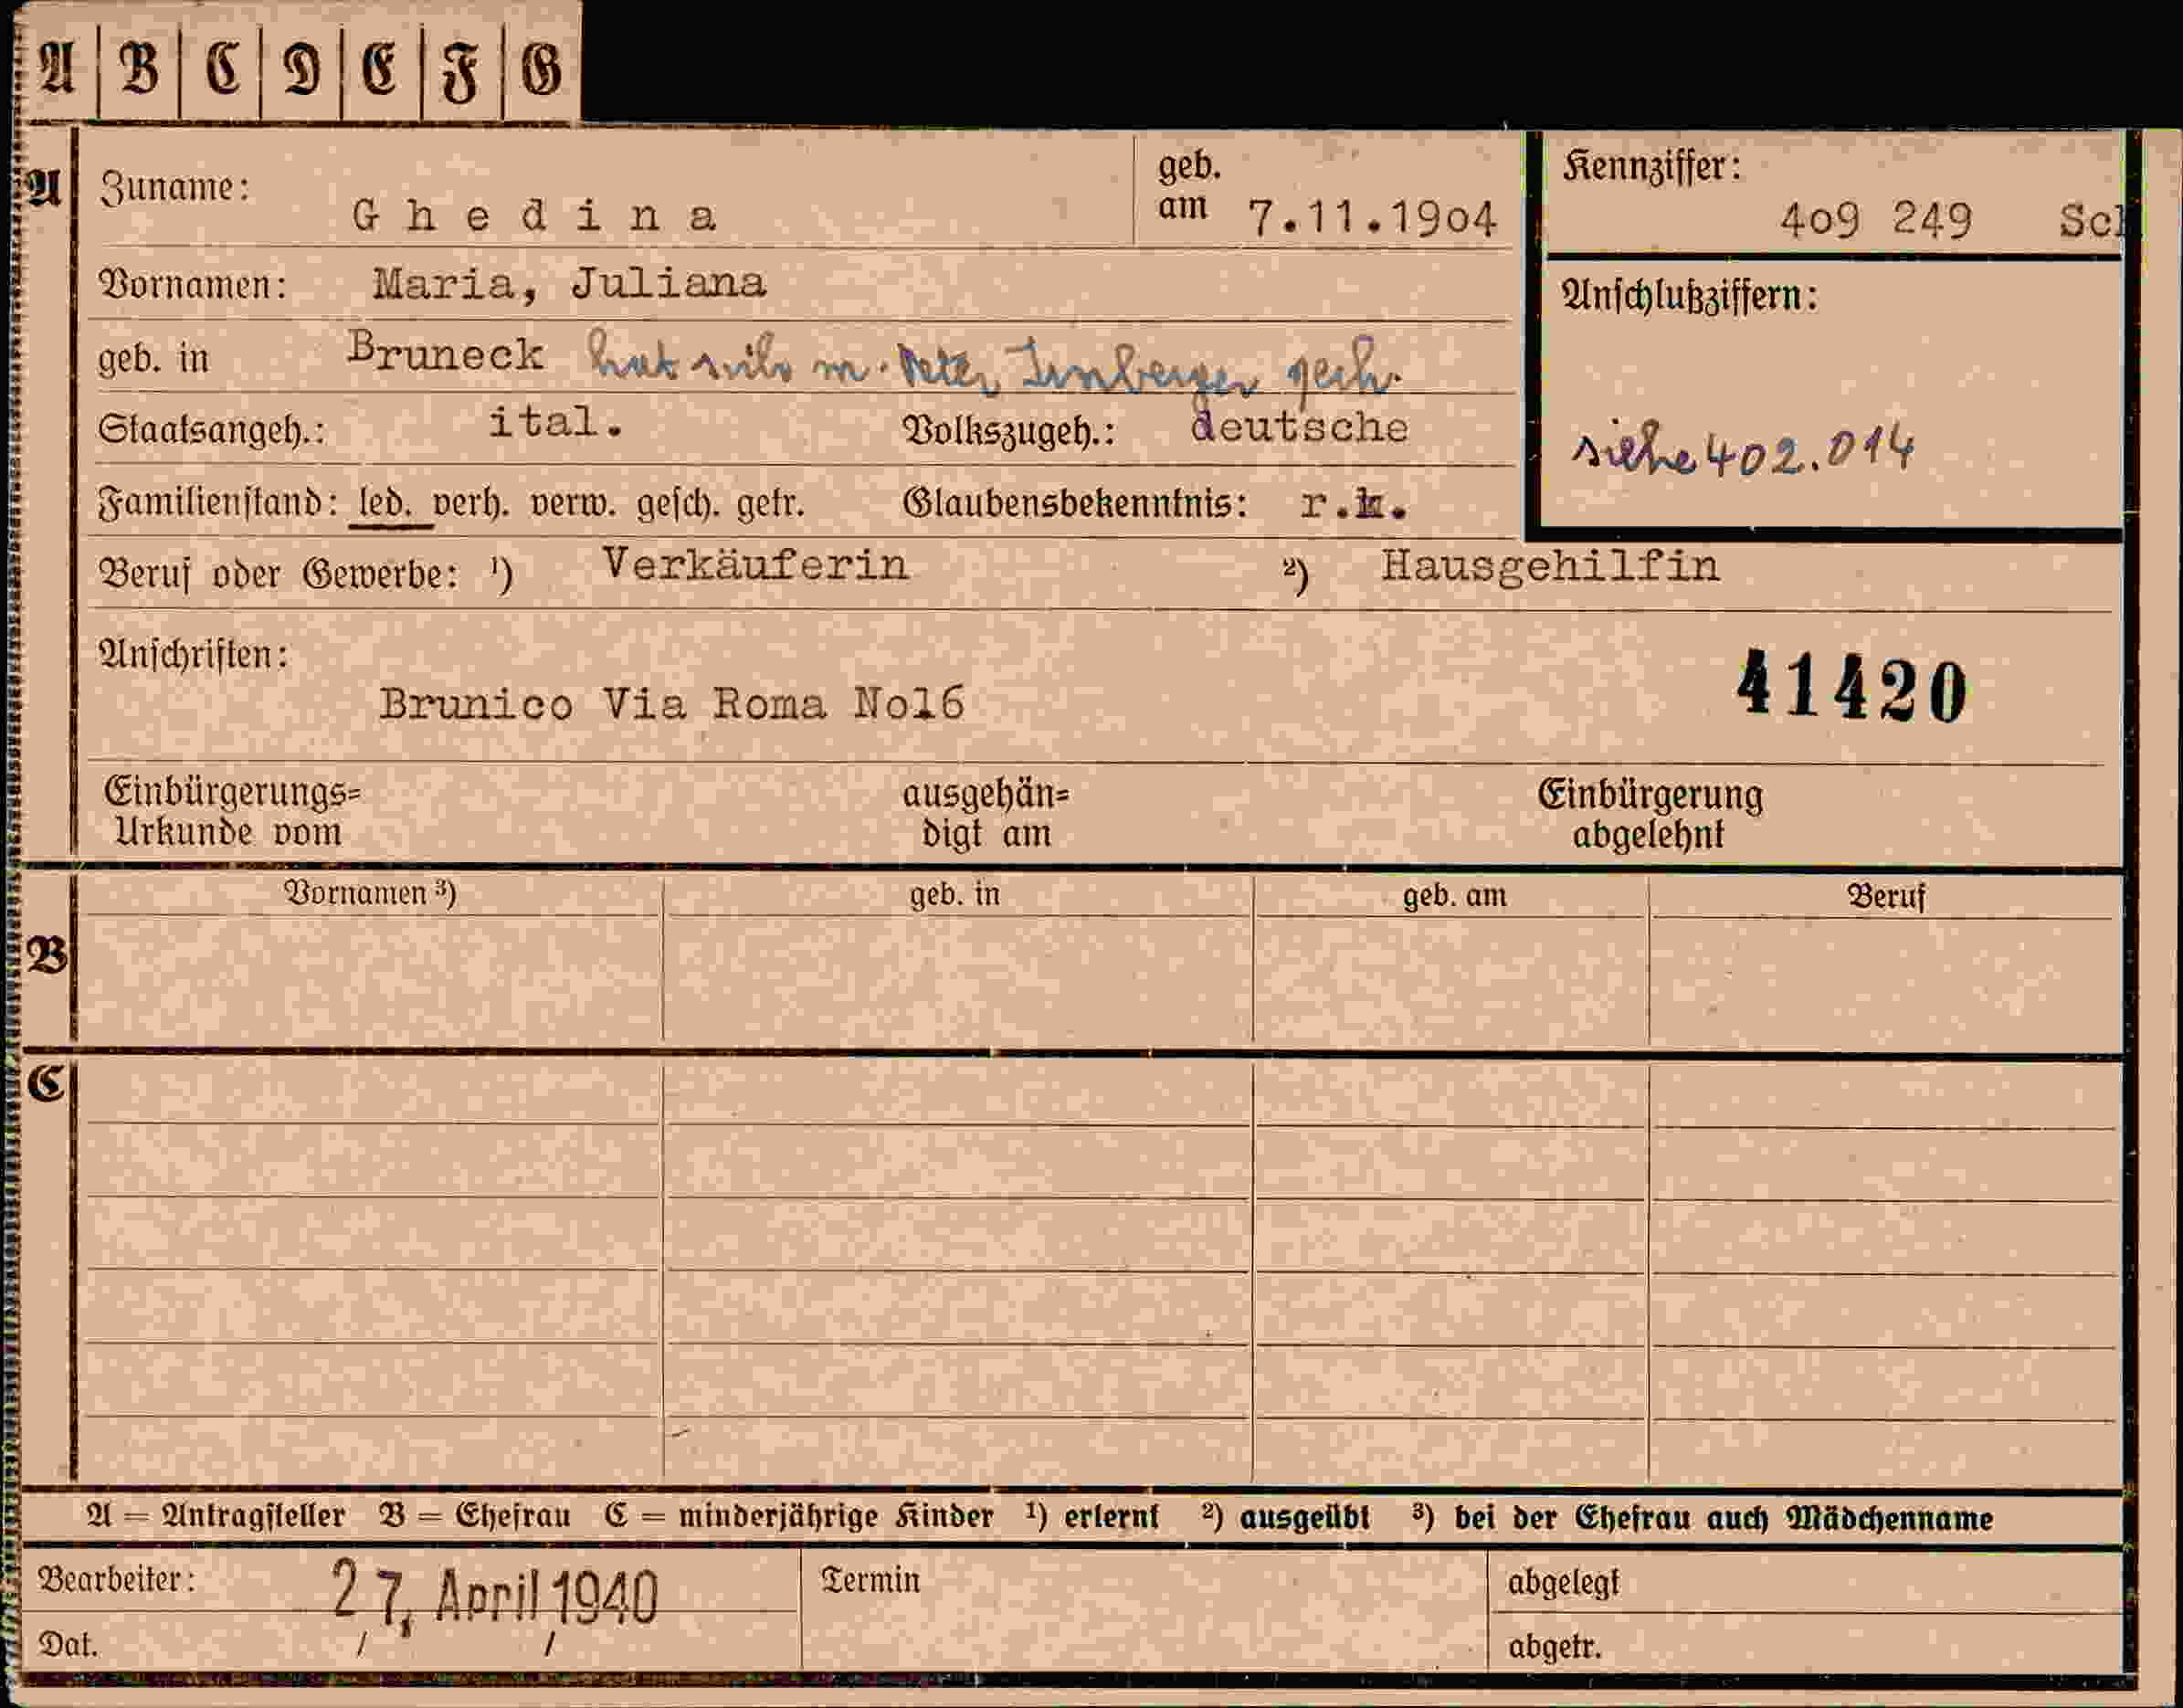 A B C D E F G
A
Zuname: Ghedina
geb. am 7.11.1904
Kennziffer: 409 249 Sch
Vornamen: Maria, Juliana
Anschlußziffern:
geb. in Bruneck hat sich m. Peter Irnberger
Staatsangeh.: ital. Volkszugeh.: deutsche
siehe 402.014
Familienstand: led. verh. verw. gesch. getr. Glaubensbekenntnis: r.k.
Beruf oder Gewerbe: ¹) Verkäuferin ²) Hausgehilfin
Anschriften:
41420
Brunico Via Roma No16
Einbürgerungs= ausgehän= Einbürgerung
Urkunde vom digt am abgelehnt
Vornamen ³) geb. in geb. am Beruf
B
C
A = Antragsteller B = Ehefrau C = minderjährige Kinder ¹) erlernt ²) ausgeübt ³) bei der Ehefrau auch Mädchenname
Bearbeiter: 27. April 1940 Termin abgelegt
Dat. / / abgetr.